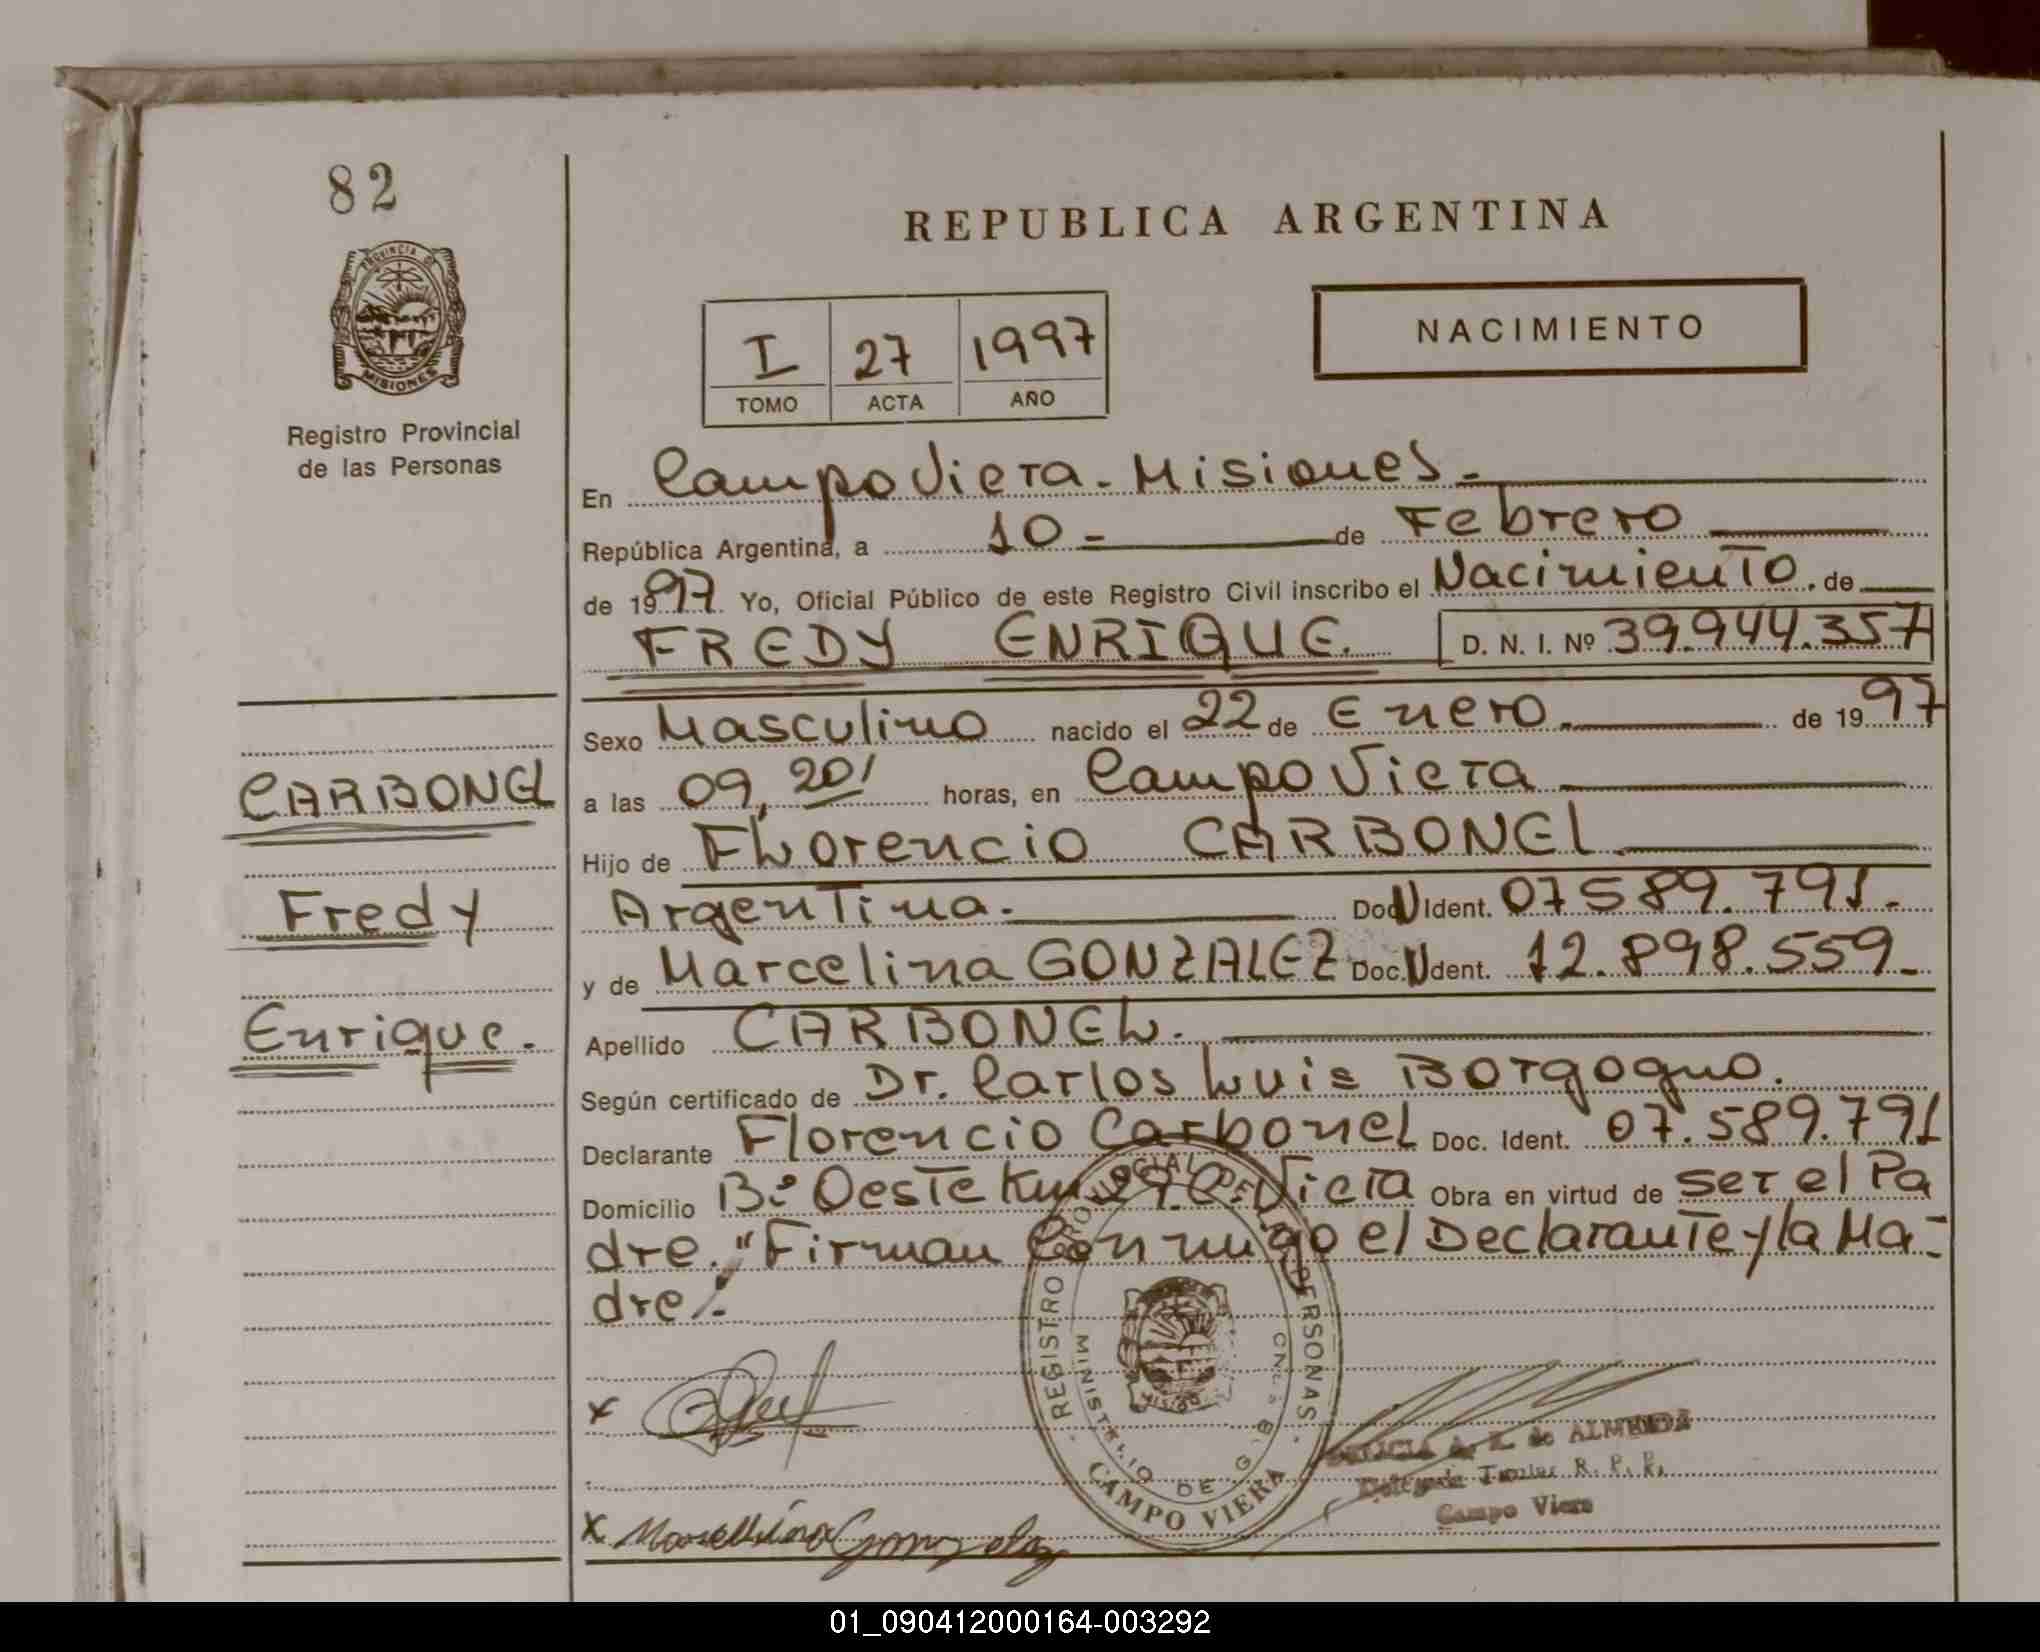 82
REPUBLICA ARGENTINA
PROVINCIA DE
MISIONES
Registro Provincial
de las Personas
I 27 1997
TOMO ACTA AÑO
NACIMIENTO
En Campo Viera - Misiones -
República Argentina, a 10 - de Febrero
de 1997 Yo, Oficial Público de este Registro Civil inscribo el Nacimiento. de
FREDY ENRIQUE. D. N. I. Nº 39.944.357
Sexo Masculino nacido el 22 de Enero. de 1997
CARBONEL
a las 09,20' horas, en Campo Viera
Hijo de Florencio CARBONEL
Fredy
Argentina.- Doc. N Ident. 07589.791.-
y de Marcelina GONZALEZ Doc. N Ident. 12.898.559.-
Enrique.
Apellido CARBONEL.
Según certificado de Dr. Carlos Luis Borgogno.
Declarante Florencio Carbonel Doc. Ident. 07.589.791
Domicilio Bº Oeste Km C. Viera Obra en virtud de ser el Pa
dre. "Firman Conmigo el Declarante y la Ma-
dre".-
REGISTRO PROVINCIAL DE LAS PERSONAS
MINISTERIO DE G.
MISIONES
CAMPO VIERA
x
de ALMEIDA
Delegada Titular R. P. P.
Campo Viera
x Marcellina Gonzalez
01_090412000164-003292